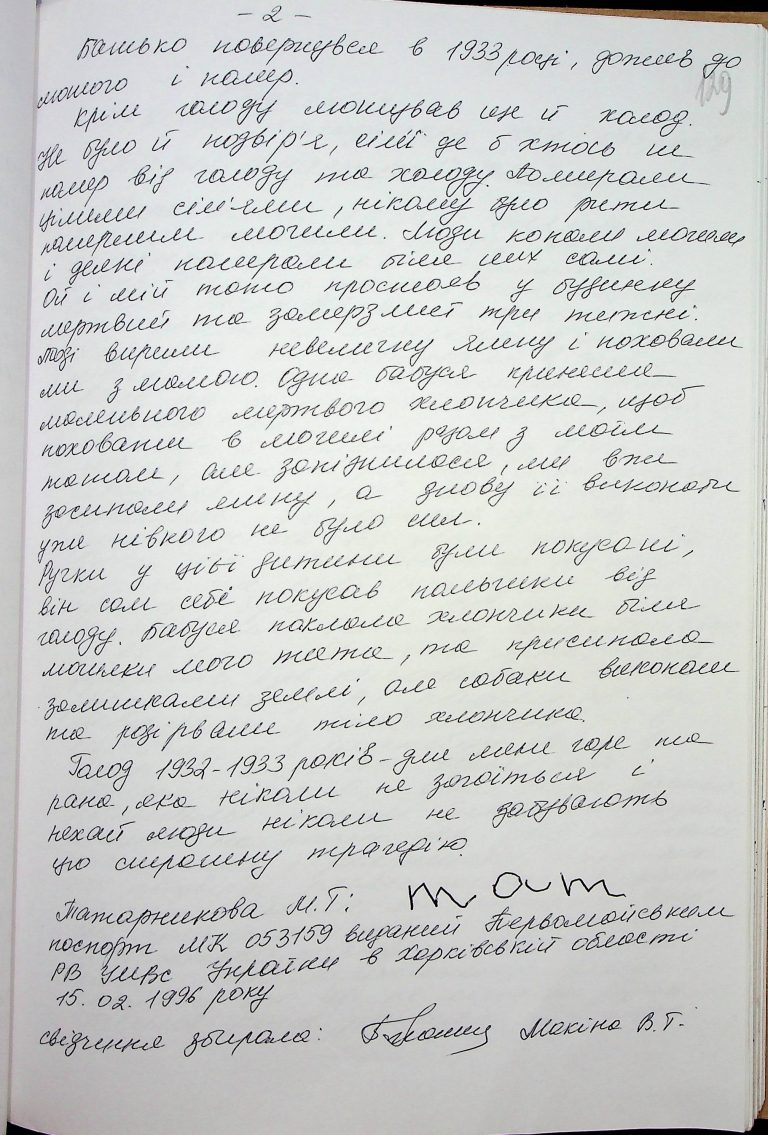 - 2 -
Батько повернувся в 1933 році, дожив до
129
лютого і помер.
Крім голоду лютував ще й холод.
Не було й подвір'я, сім'ї де б хтось не
помер від голоду та холоду. Помирали
цілими сім'ями, нікому було рити
померлим могили. Люди копали могили
і деякі помирали біля них самі.
Ой і мій тато пролежав у будинку
мертвий та замерзлий три тижні.
Люди вирили невеличку ямку і поховали
ми з мамою. Одна бабуся принесла
маленького мертвого хлопчика, щоб
поховати в могилі разом з моїм
татом, але запізнилася, ми вже
засипали яму, а знову її викопати
уже нівкого не було сил.
Ручки у цієї дитини були покусані,
він сам себе покусав пальчики від
голоду. Бабуся поклала хлопчика біля
могилки мого тата, та присипала
залишками землі, але собаки викопали
та розірвали тіло хлопчика.
Голод 1932-1933 років - для мене горе та
рана, яка ніколи не загоїться і
нехай люди ніколи не забувають
цю страшну трагедію.
Татарникова М.Т: тат
паспорт МК 053159 виданий Первомайським
РВ УМВС України в Харківській області
15. 02. 1996 року
свідчення збирала: Макіна В.Т.